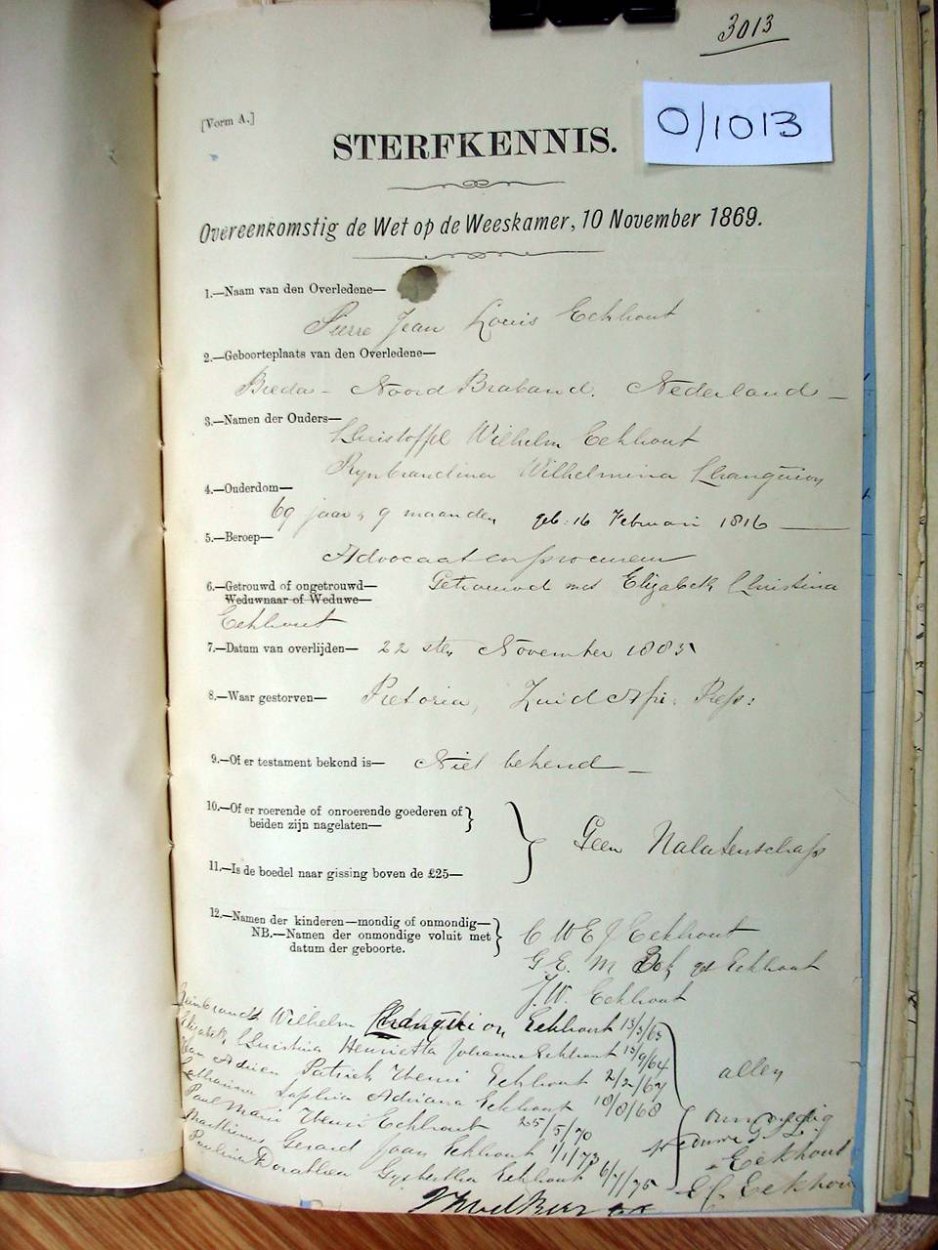 3013
O/1013
[Vorm A.]
STERFKENNIS.
Overeenkomstig de Wet op de Weeskamer, 10 November 1869.
1.—Naam van den Overledene—
Pierre Jean Louis Eckhout
2.—Geboorteplaats van den Overledene—
Breda - Noord Braband. Nederlands
3.—Namen der Ouders—
Christoffel Wilhelm Eckhout
Rynbrandina Wilhelmina Changuion
4.—Ouderdom—
69 jaar, 9 maanden geb: 16 Februari 1816
5.—Beroep—
Advocaat en procureur
6.—Getrouwd of ongetrouwd— Getrouwd met Elizabeth Christina
Weduwnaar of Weduwe—
Eckhout
7.—Datum van overlijden— 22sten November 1885
8.—Waar gestorven— Pretoria, Zuid Afr. Rep:
9.—Of er testament bekend is— Niet bekend
10.—Of er roerende of onroerende goederen of
beiden zijn nagelaten—
Geen Nalatenschap
11.—Is de boedel naar gissing boven de £25—
12.—Namen der kinderen—mondig of onmondig—
NB.—Namen der onmondige voluit met
datum der geboorte.
C W E J Eckhout
G. E. M Bok Eckhout
J. W. Eckhout
Wilhelm Changuion Eckhout 13/3/63
Christina Henrietta Johanna Eckhout 15/9/64
Adrien Patrick Henri Eckhout 2/2/67
Catharina Sophia Adriana Eckhout 18/8/68
Paul Marie Henri Eckhout 25/5/70
Marthinus Gerard Joan Eckhout 1/1/73
Paulina Dorathea Eckhout 6/7/75
allen
onmondig
Eeckhout